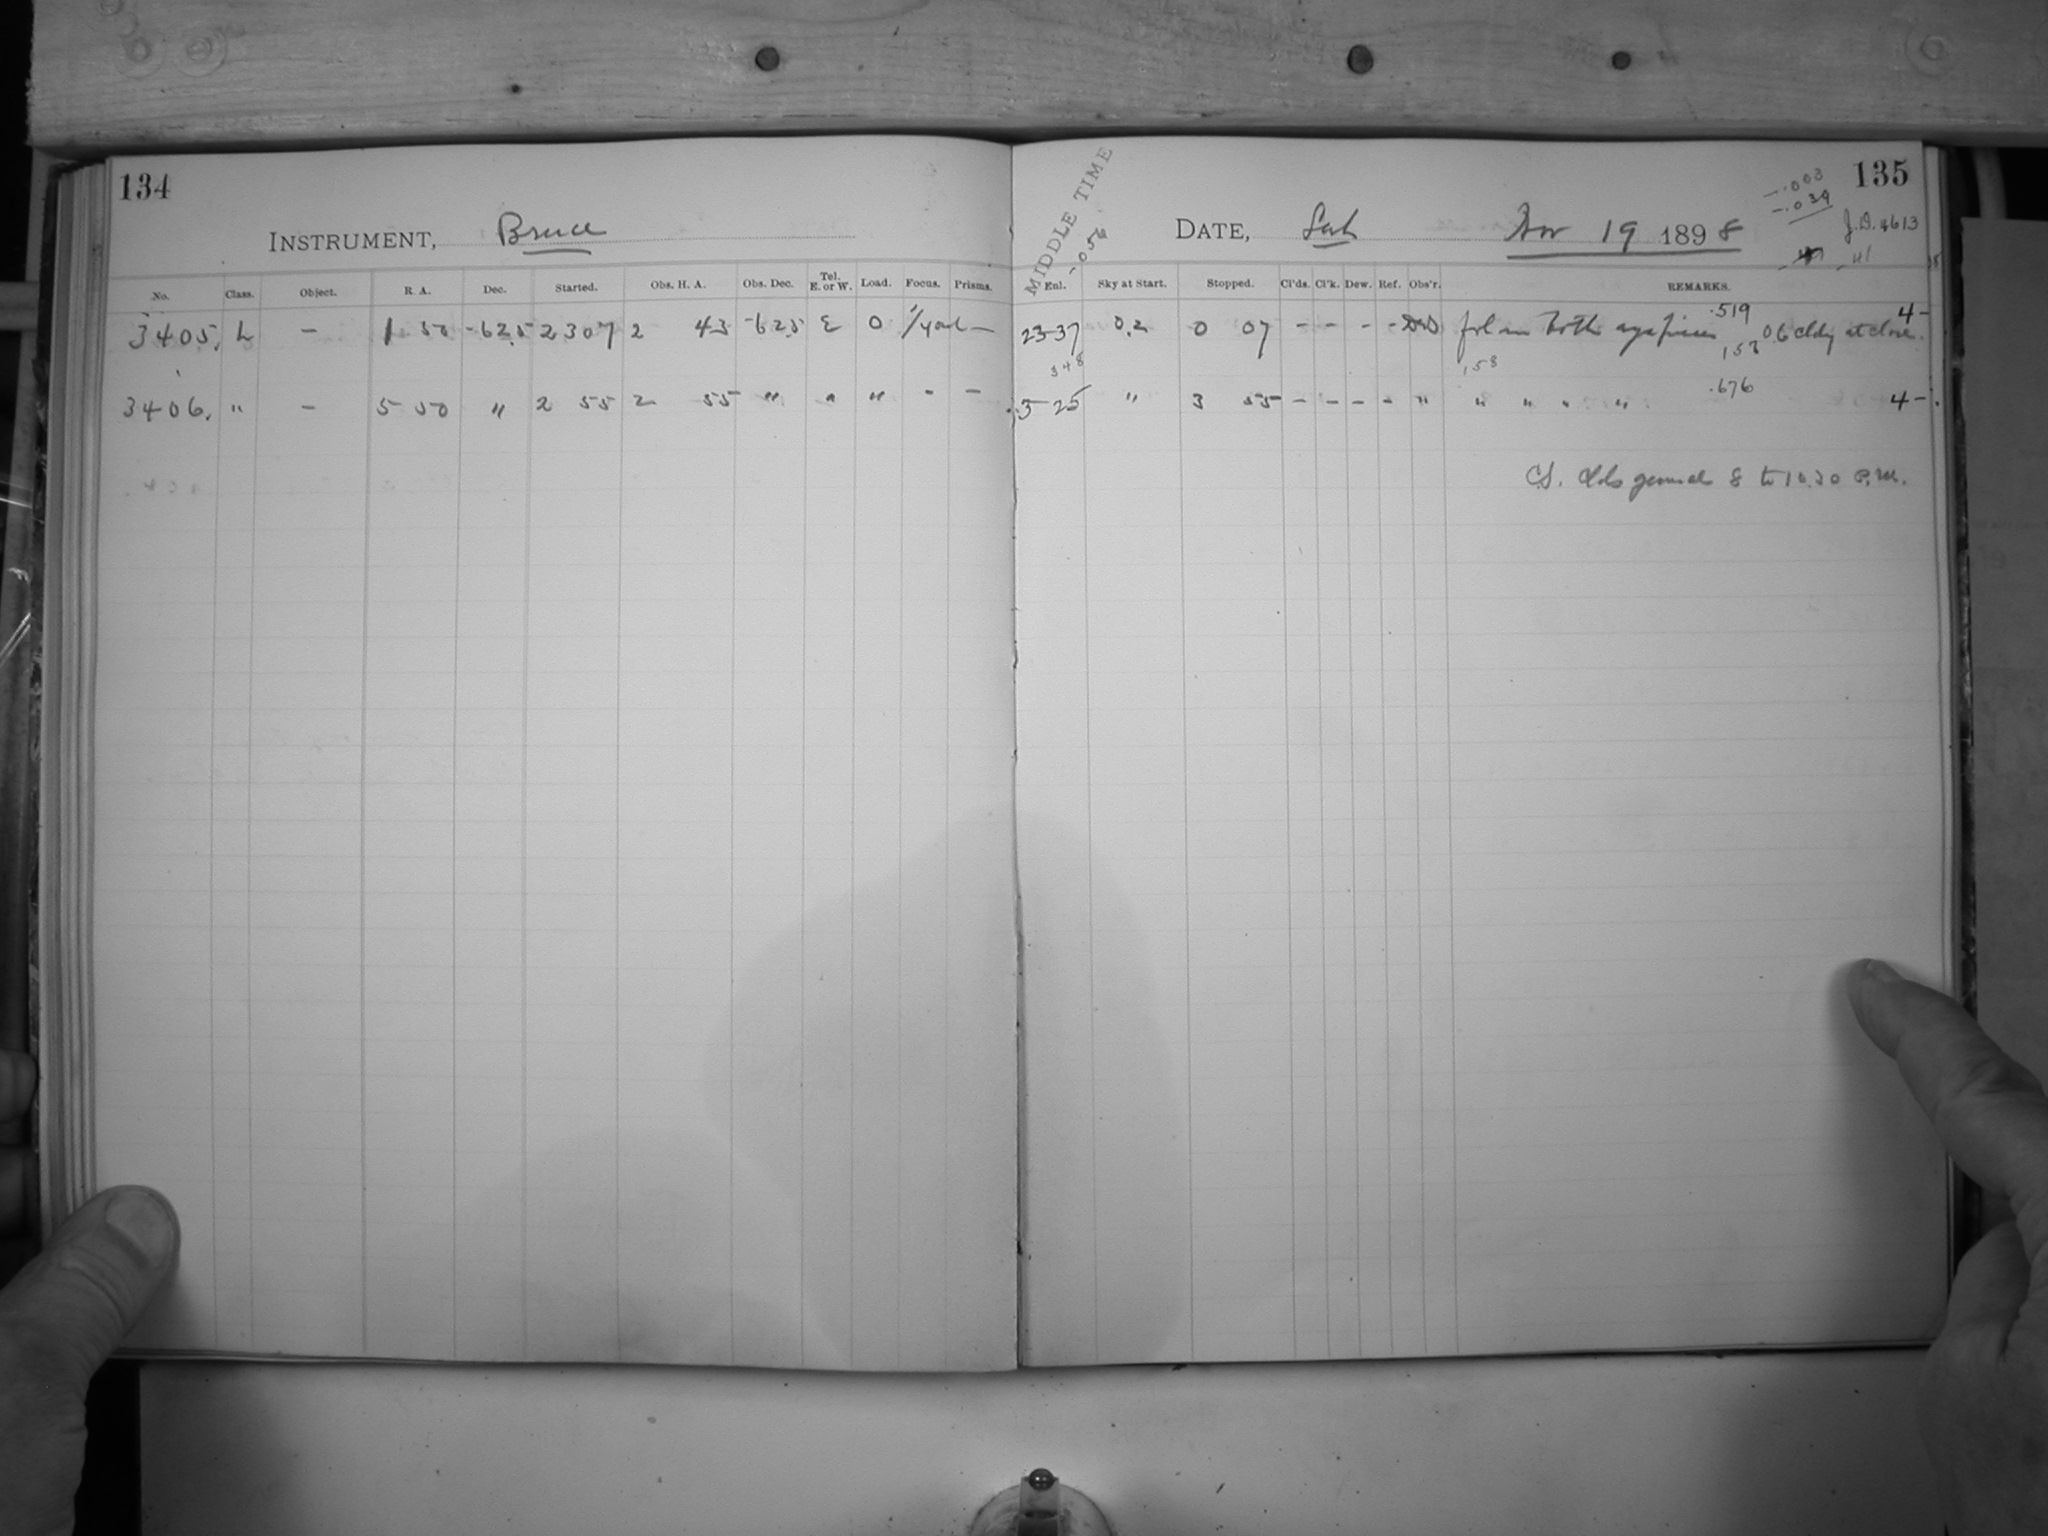 134
INSTRUMENT, Bruce
No. Class. Object. R. A. Dec. Started. Obs. H. A. Obs. Dec. Tel. E. or W. Load. Focus. Prisms.
3405. L - 1 50 -62.5 23 07 2 43 -62.5 E 0 -
3406. " - 5 50 " 2 55 2 55 " " " - -
135
MIDDLE TIME
-.056
-.003
-.039
DATE, Sat Nov 19 1898
J.D. 4613
-41
Enl. Sky at Start. Stopped. Cl'ds. Cl'k. Dew. Ref. Obs'r. REMARKS.
.519 4-
23 37 0.2 0 07 - - - - fol on both 0.6 cldy at close.
348 .158 .153
.676
3 25 " 3 55 - - - - " " " " " 4-
8 to 10.30 P.M.